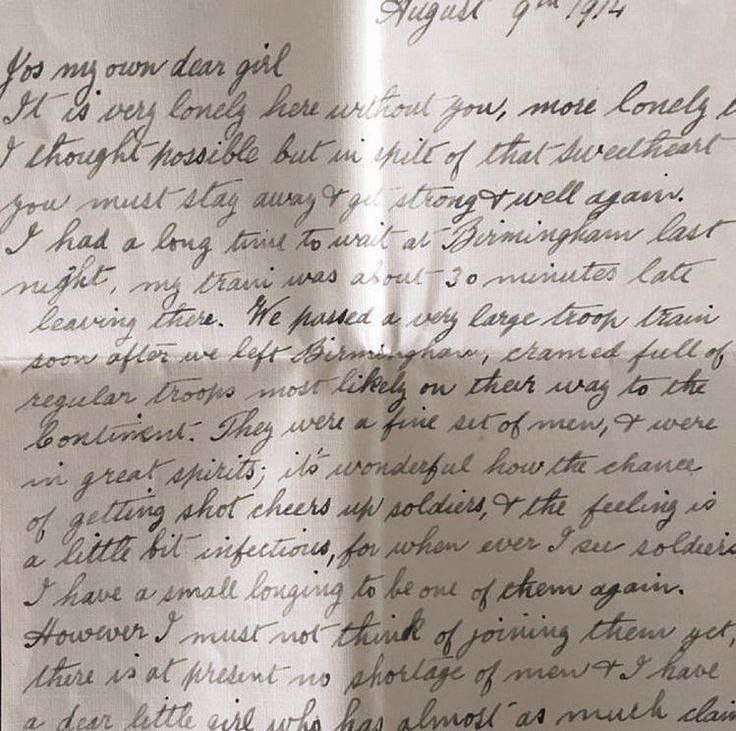 August 9th 1914
Yos my own dear girl
It is very lonely here without you, more lonely
I thought possible but in spite of that Sweetheart
you must stay away & get strong & well again.
I had a long time to wait at Birmingham last
night, my train was about 30 minutes late
leaving there. We passed a very large troop train
soon after we left Birmingham, cramed full of
regular troops most likely on their way to the
Continent. They were a fine set of men, & were
in great spirits; it's wonderful how the chance
of getting shot cheers up soldiers, & the feeling is
a little bit infectious, for when ever I see soldiers
I have a small longing to be one of them again.
However I must not think of joining them yet,
there is at present no shortage of men & I have
a dear little girl who has almost as much claim